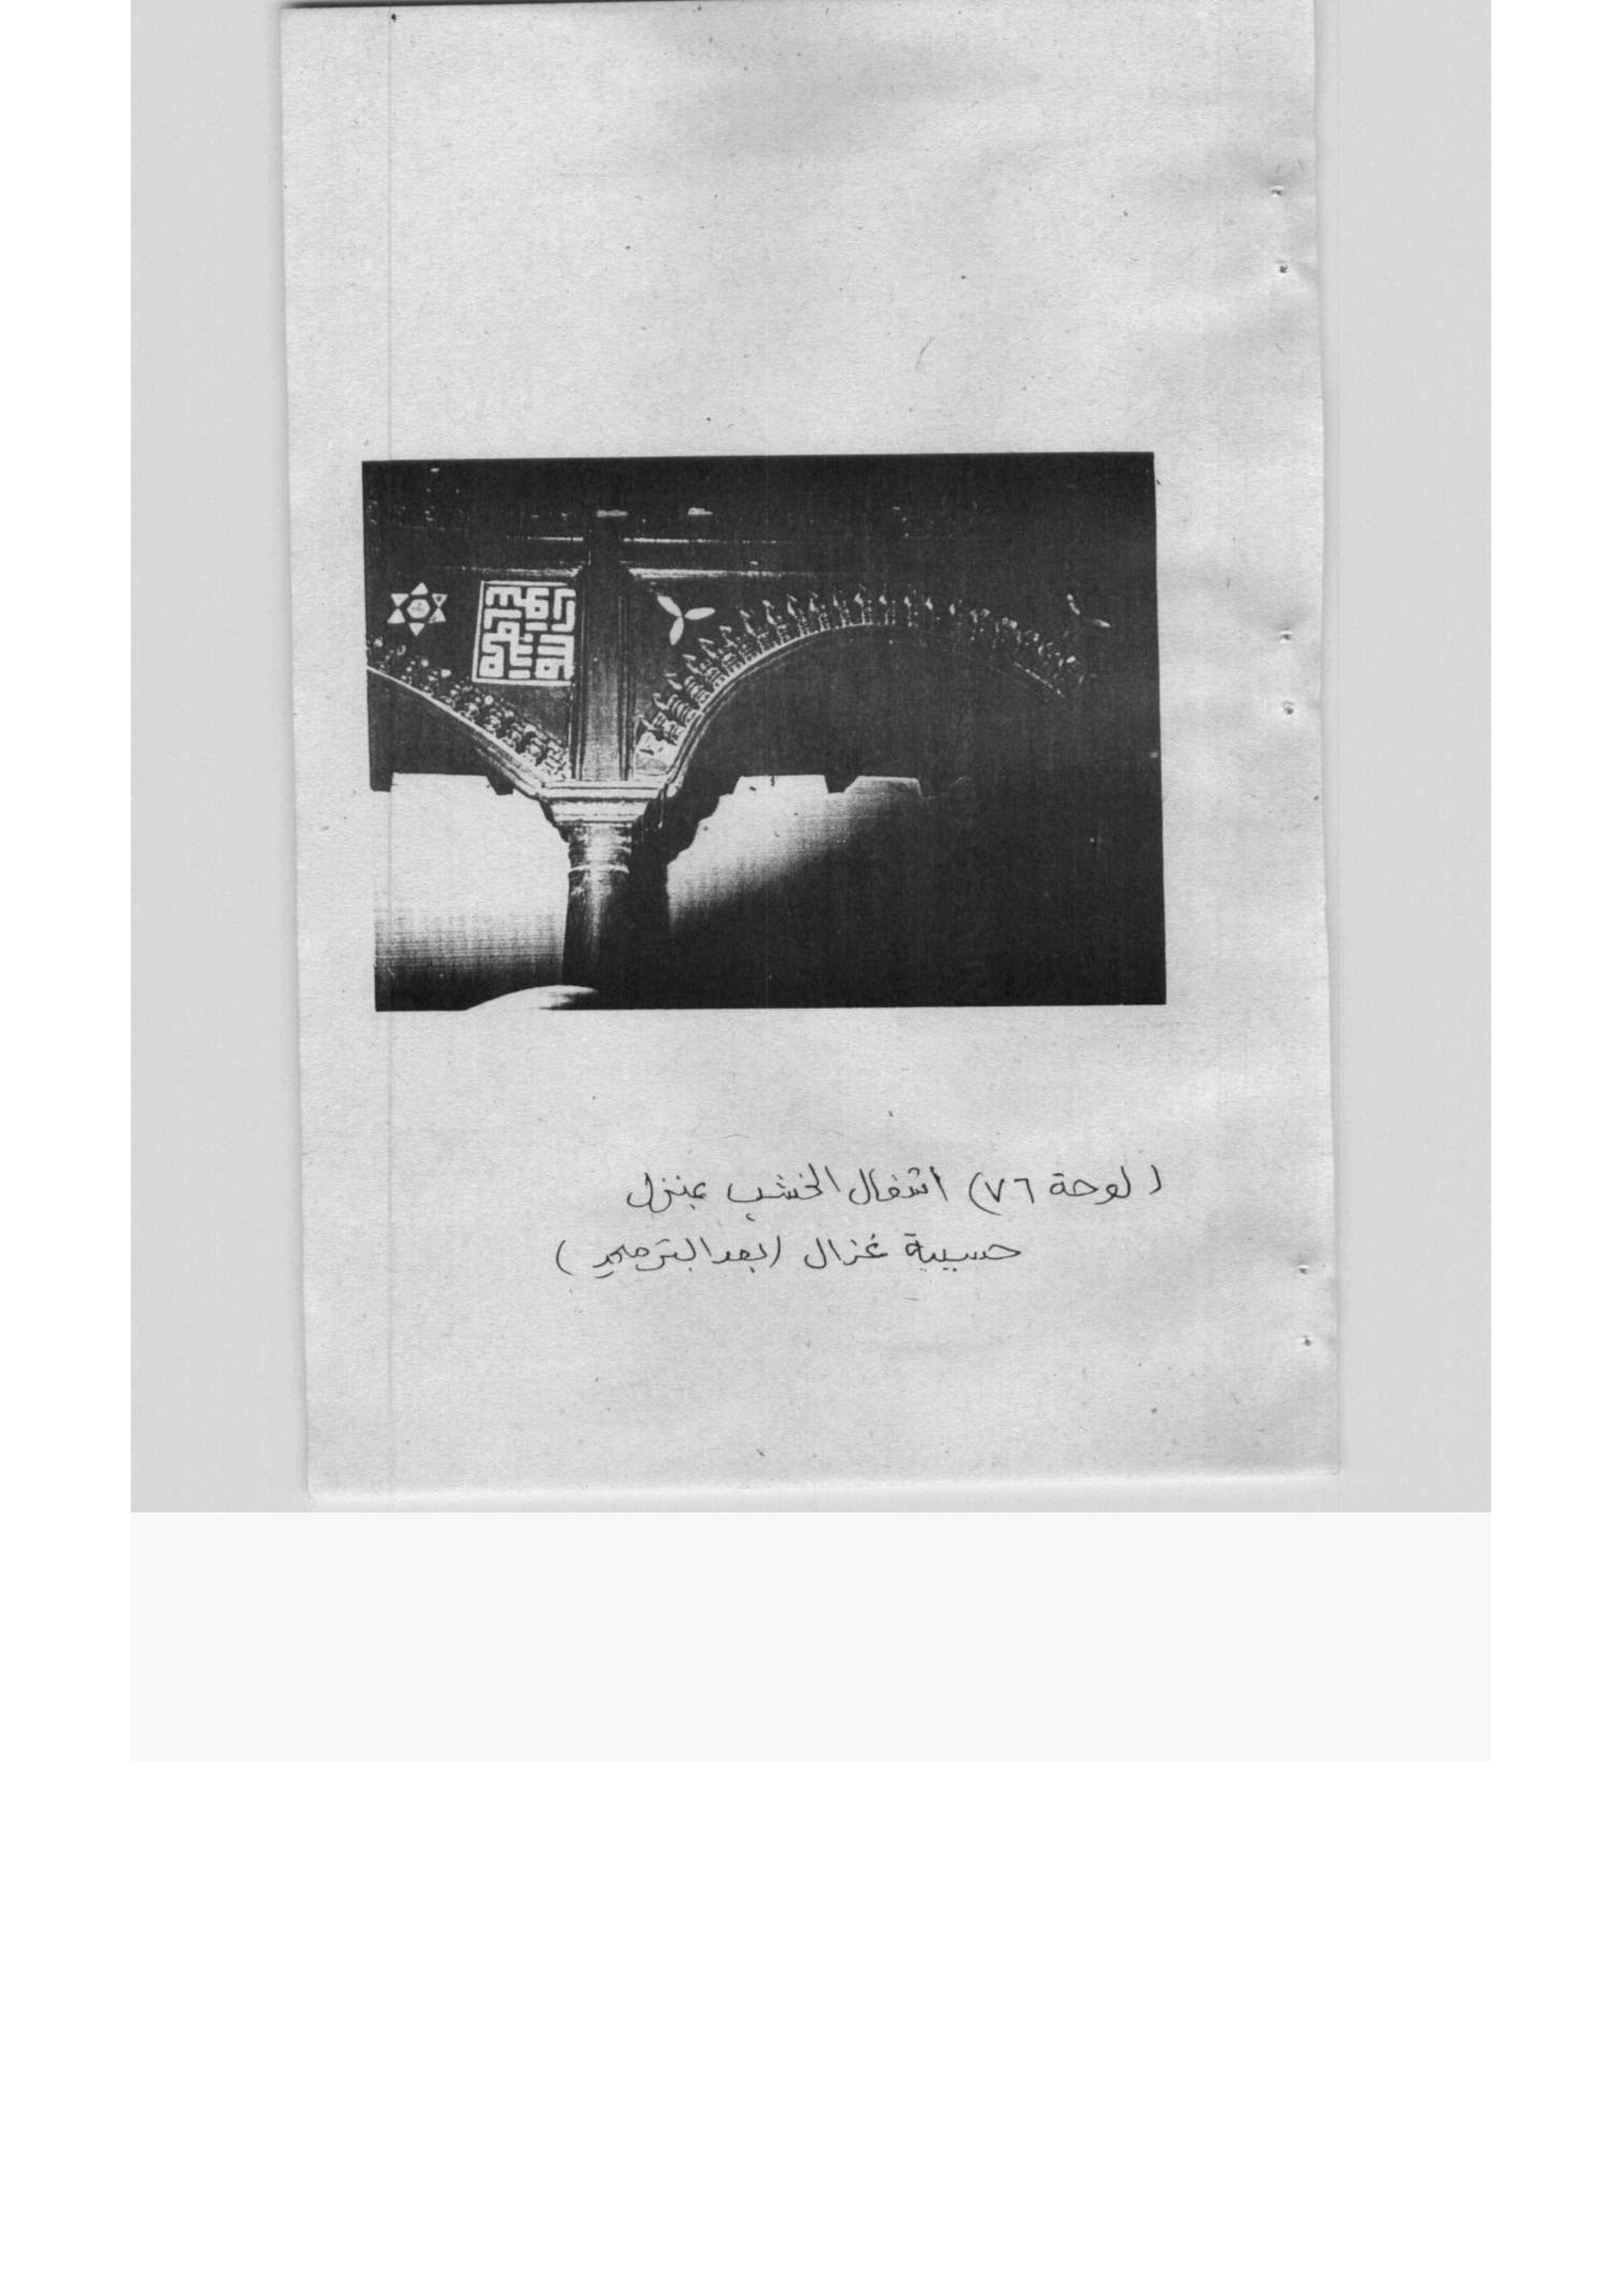 (لوحة ٧٦) اشغال الخشب بمنزل
حسيبة غزال (بعد الترميم)